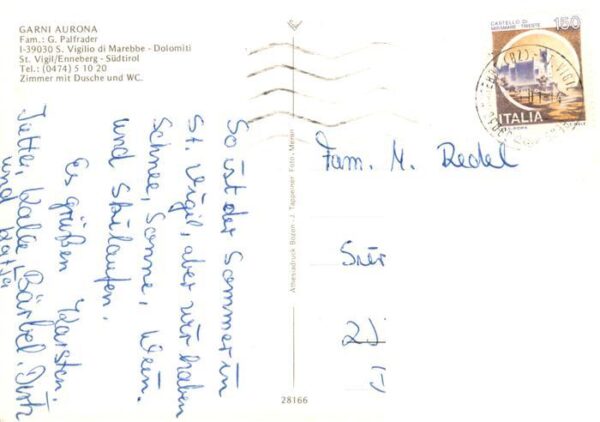 GARNI AURONA
Fam.: G. Palfrader
I-39030 S. Vigilio di Marebbe - Dolomiti
St. Vigil/Enneberg - Südtirol
Tel.: (0474) 5 10 20
Zimmer mit Dusche und WC.
So ist der Sommer in
St. Vigil, aber wir haben
Schnee, Sonne, Wein
und Skilaufen.
Es grüßen Karsten,
Jutta, Bärbel,
und Katja
Athesiadruck Bozen - J. Tappeiner Foto - Meran
28166
CASTELLO DI
MIRAMARE - TRIESTE
150
ITALIA
Fam. M. Redel